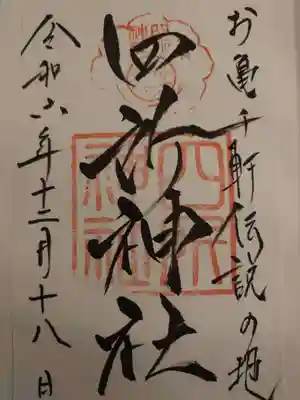 お亀千軒伝説の地
四所神社
四所神社
令和六年十二月十八日